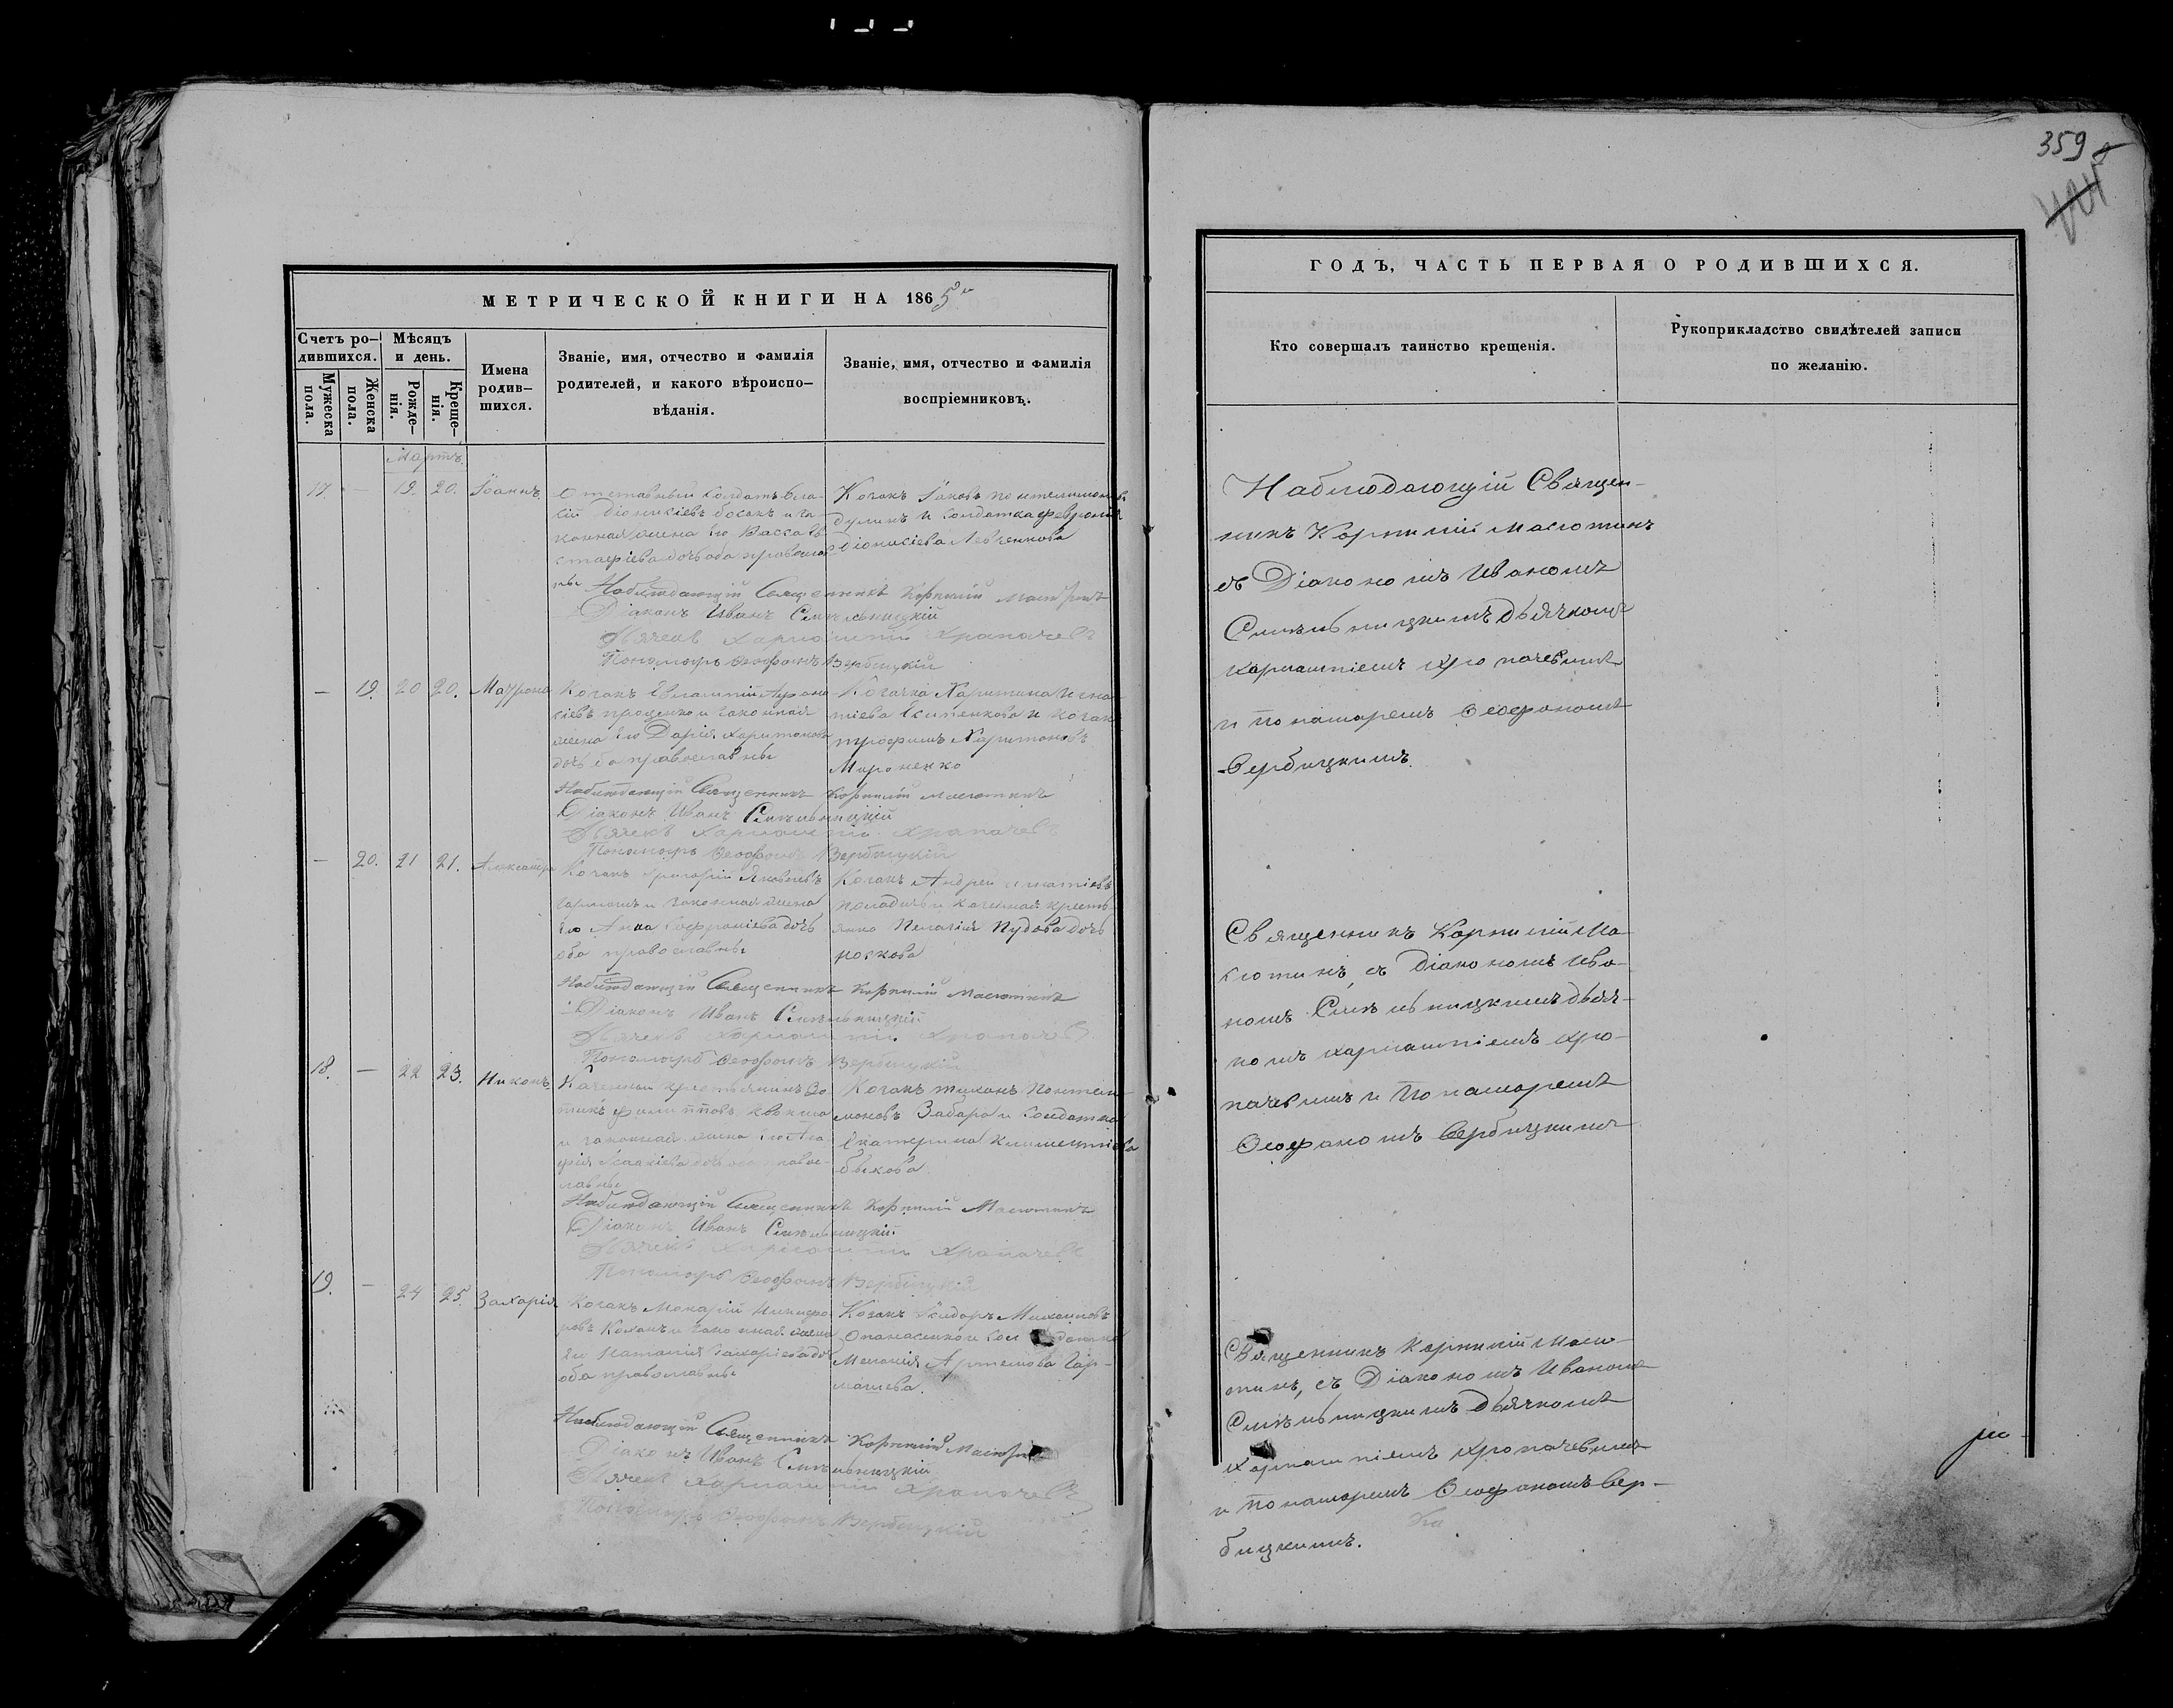 359
МЕТРИЧЕСКОЙ КНИГИ НА 1865
Счетъ ро-
дившихся.
Мужеска
пола.
Женска
пола.
Мѣсяцъ
и день.
Рожде-
нія.
Креще-
нія.
Имена
родив-
шихся.
Званіе, имя, отчество и фамилія
родителей, и какого вѣроиспо-
вѣданія.
Званіе, имя, отчество и фамилія
воспріемниковъ.
Мартъ
17. — 19. 20. Іоаннъ
Отставный Солдатъ
жена его Васса
Козакъ Іаковъ
и Солдатка Феврония
Діонисіева Левченкова
Наблюдающій Священникъ Корнилій Масютинъ
Діаконъ Иванъ Синѣльницкій
Дячекъ Харлампій Храпачевъ
Пономарь Ѳеофанъ Вербицкій
— 19. 20 20. Матрона
Козакъ Евлампій
Проценко и законная
жена его Дарія Харитонова
дочь оба православны
Козачка Харитина Игна-
тіева Есипенкова и козакъ
Трофимъ Харитоновъ
Мироненко
Наблюдающій Священникъ Корнилій Масютинъ
Діаконъ Иванъ Синѣльницкій
Дячекъ Харлампій Храпачевъ
Пономарь Ѳеофанъ Вербицкій
— 20. 21 21. Александра
Козакъ Григорій Яковлевъ
и законная жена
его Анна Софроніева дочь
оба православны
Козакъ Андрей Игнатіевъ
и казенная кресть-
янка Пелагія Пудова дочь
Носкова
Наблюдающій Священникъ Корнилій Масютинъ
Діаконъ Иванъ Синѣльницкій
Дячекъ Харлампій Храпачевъ
Пономарь Ѳеофанъ Вербицкій
18. — 22 23. Никонъ
Казенный крестьянинъ
и законная жена его
Козакъ Тихонъ Пантели-
моновъ Забара и Солдатка
Екатерина Климентіева
Быкова.
Наблюдающій Священникъ Корнилій Масютинъ
Діаконъ Иванъ Синѣльницкій
Дячекъ Харлампій Храпачевъ
Пономарь Ѳеофанъ Вербицкій
19. — 24 25. Захарія
Козакъ Макарій Никифо-
ровъ и законная жена
его Наталія Захаріева дочь
оба православны
Козакъ Исидоръ Михаиловъ
Опанасенко и Солдатка
Меланія Артемова Гар-
машева.
Наблюдающій Священникъ Корнилій Масютинъ
Діаконъ Иванъ Синѣльницкій
Дячекъ Харлампій Храпачевъ
Пономарь Ѳеофанъ Вербицкій
ГОДЪ, ЧАСТЬ ПЕРВАЯ О РОДИВШИХСЯ.
Кто совершалъ таинство крещенія.
Рукоприкладство свидѣтелей записи
по желанію.
Наблюдающій Священ-
никъ Корнилій Масютинъ
съ Діакономъ Иваномъ
Синѣльницкимъ Дьячкомъ
Харлампіемъ Храпачевымъ
и Пономаремъ Ѳеофаномъ
Вербицкимъ.
Священникъ Корнилій Ма-
сютинъ, съ Діакономъ Ива-
номъ Синѣльницкимъ дьяч-
комъ Харлампіемъ Хра-
пачевымъ и Пономаремъ
Ѳеофаномъ Вербицкимъ
Священникъ Корнилій Масю-
тинъ, съ Діакономъ Иваномъ
Синѣльницкимъ Дьячкомъ
Харлампіемъ Храпачевымъ
и Пономаремъ Ѳеофаномъ Вер-
бицкимъ.